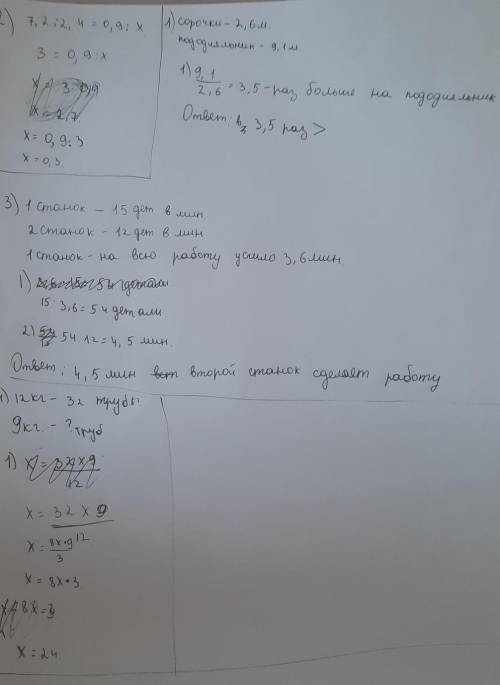 2) 7,2 : 2,4 = 0,9 : x
3 = 0,9 : x
x = 3 · 0,9
x = 2,7
x = 0,9 : 3
x = 0,3
1) сорочки - 2,6 м.
пододияльник - 9,1 м
1) 9,1 / 2,6 = 3,5 - раз больше на пододияльник
Ответ: в 3,5 раз >
3) 1 станок - 15 дет в мин
2 станок - 12 дет в мин
1 станок - на всю работу ушло 3,6 мин
1)
15 · 3,6 = 54 детали
2) 54 : 12 = 4,5 мин.
Ответ: 4,5 мин второй станок сделает работу
4) 12 кг - 32 трубы
9 кг. - ? труб
1) x = 32 x 9
12
x = 32 x 9
12
x = 8x · 9
3
x = 8x · 3
8x = 3
x = 24